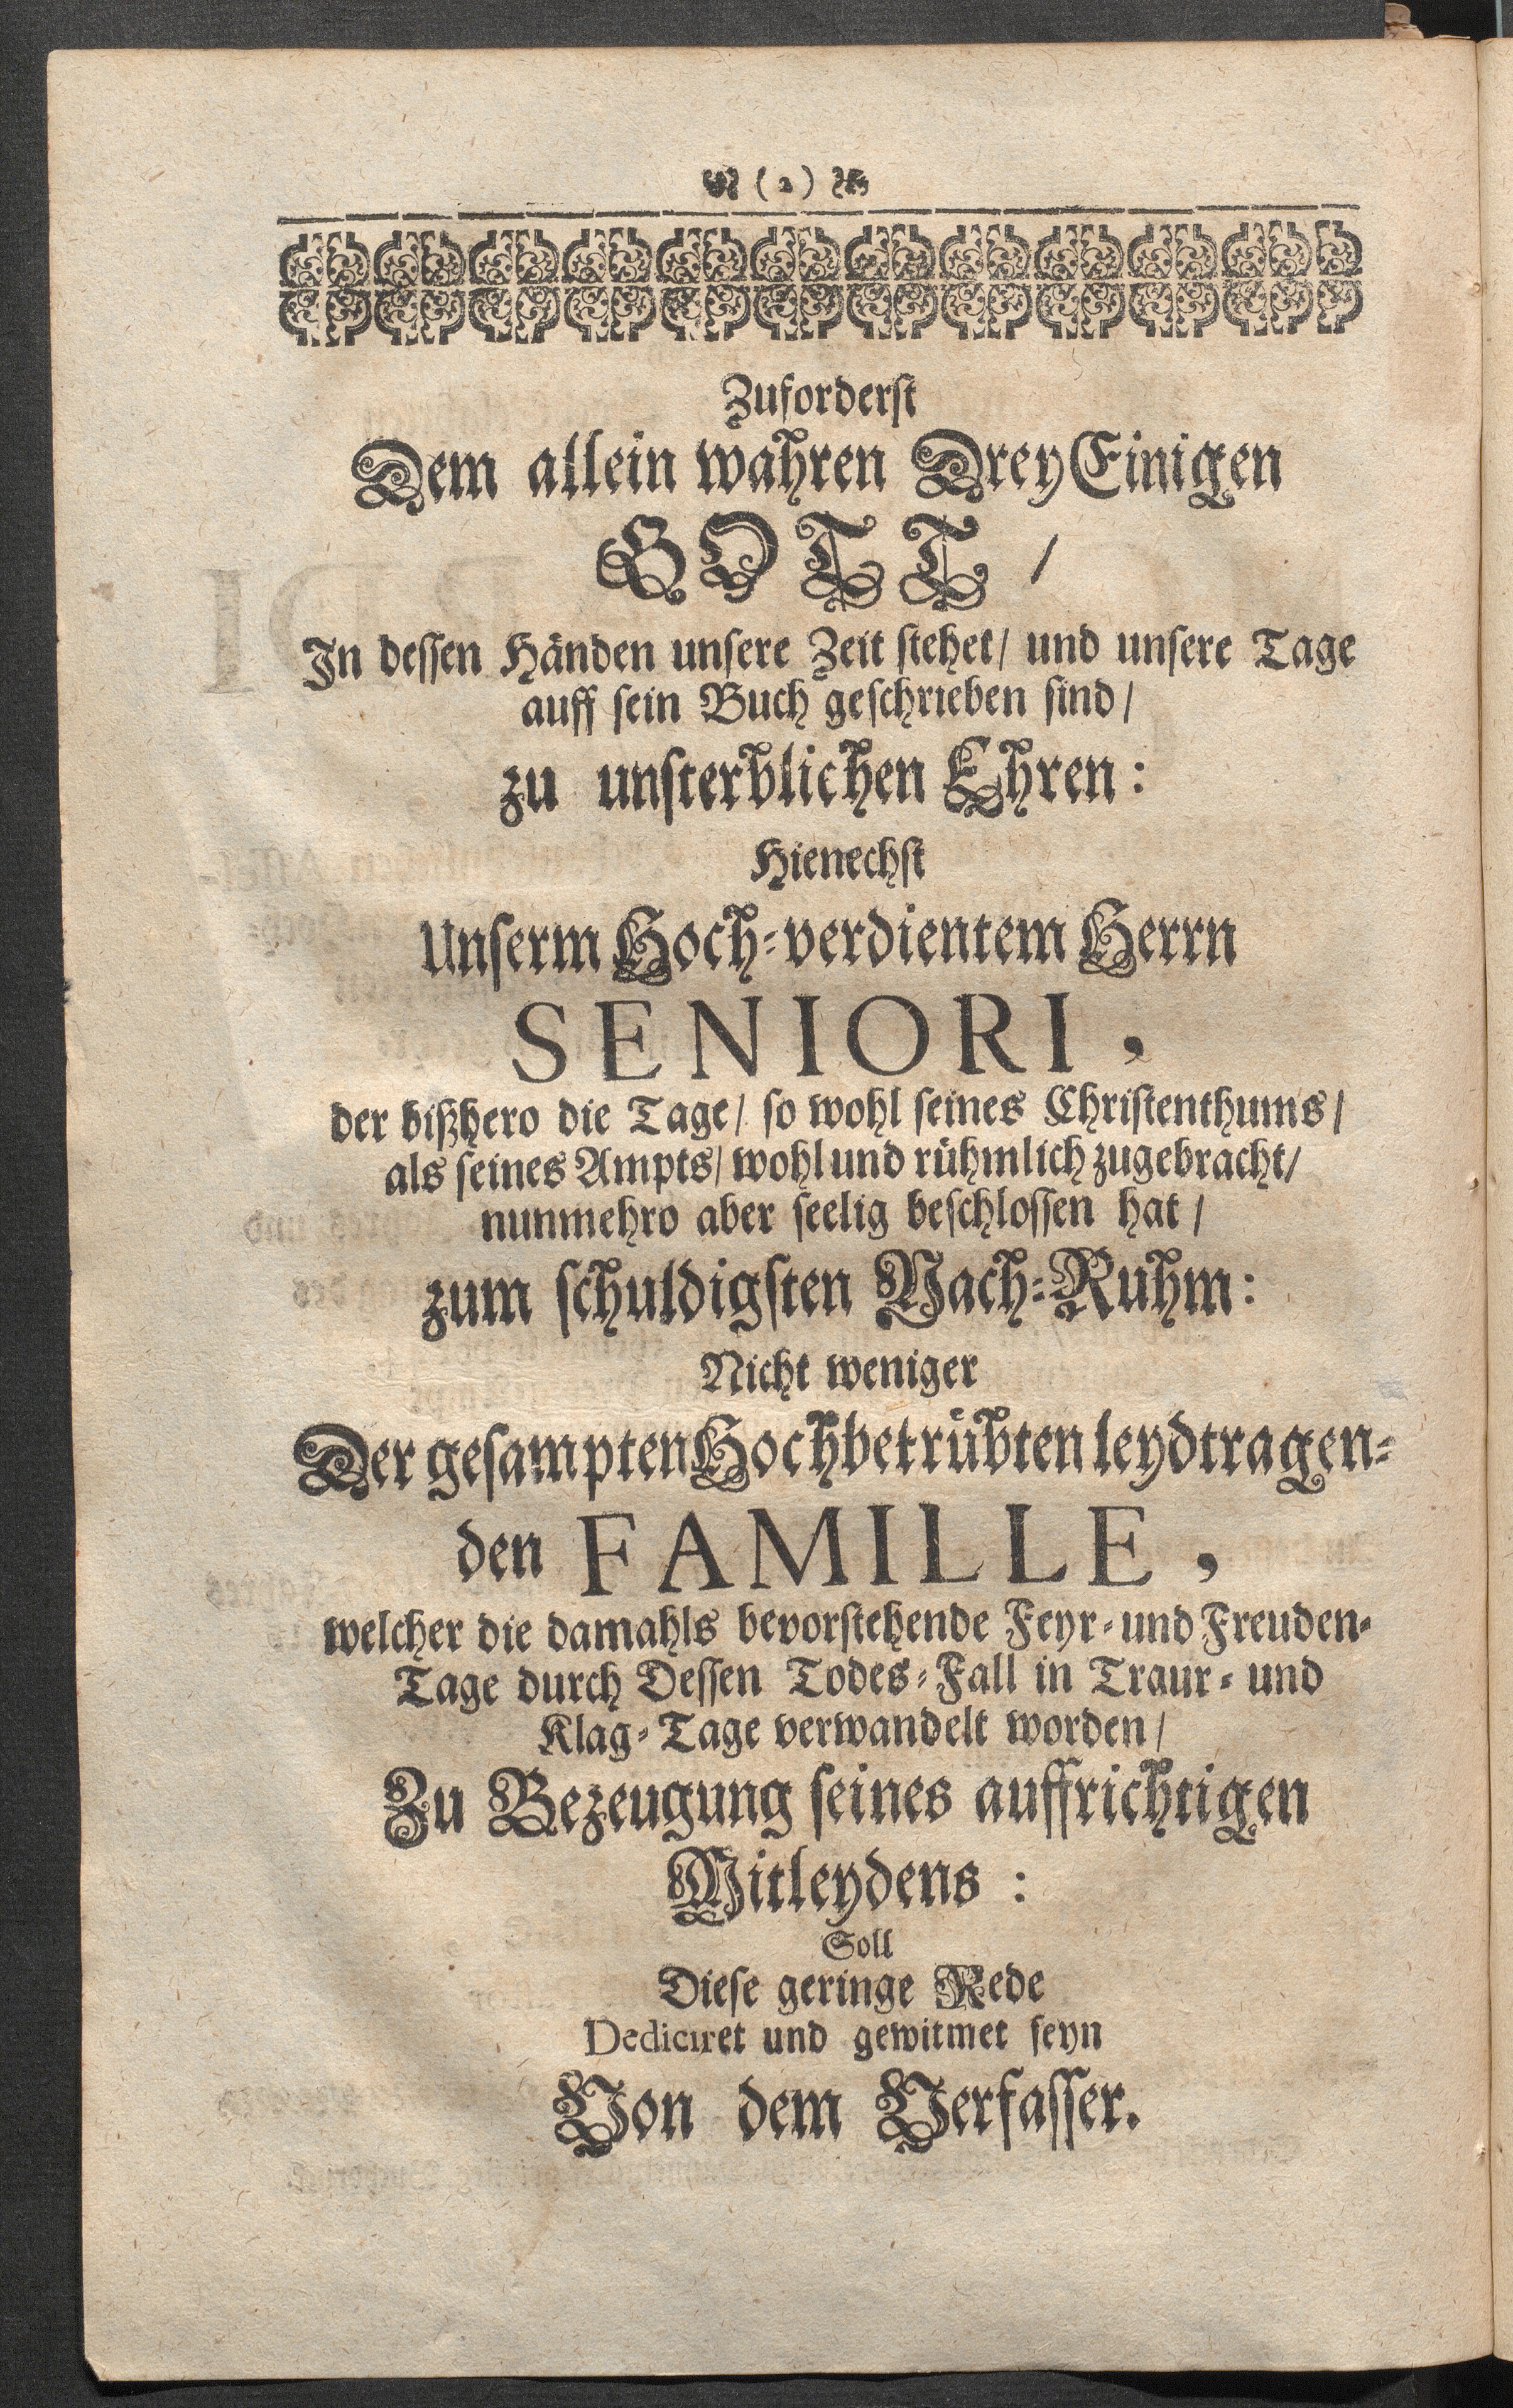 (2)
Zuforderst
Dem allein wahren DreyEinigen
GOTT /
In dessen Händen unsere Zeit stehet / und unsere Tage
auff sein Buch geschrieben sind /
zu unsterblichen Ehren:
Hienechst
Unserm Hoch-verdientem Herrn
SENIORI,
der bißhero die Tage / so wohl seines Christenthums /
als seines Ampts / wohl und rühmlich zugebracht /
nunmehro aber seelig beschlossen hat /
zum schuldigsten Nach-Ruhm:
Nicht weniger
Der gesampten Hochbetrübten leydtragen-
den FAMILLE,
welcher die damahls bevorstehende Feyr- und Freuden-
Tage durch Dessen Todes-Fall in Traur- und
Klag-Tage verwandelt worden /
Zu Bezeugung seines auffrichtigen
Mitleydens:
Soll
Diese geringe Rede
Dediciret und gewitmet seyn
Von dem Verfasser.